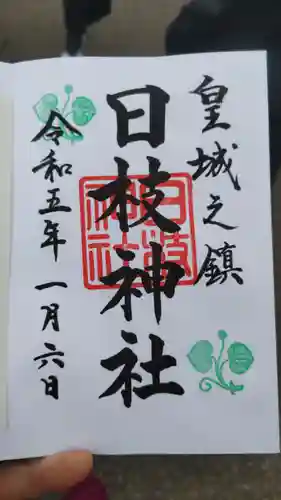 皇城之鎮
日枝神社
日枝神社
令和五年一月六日